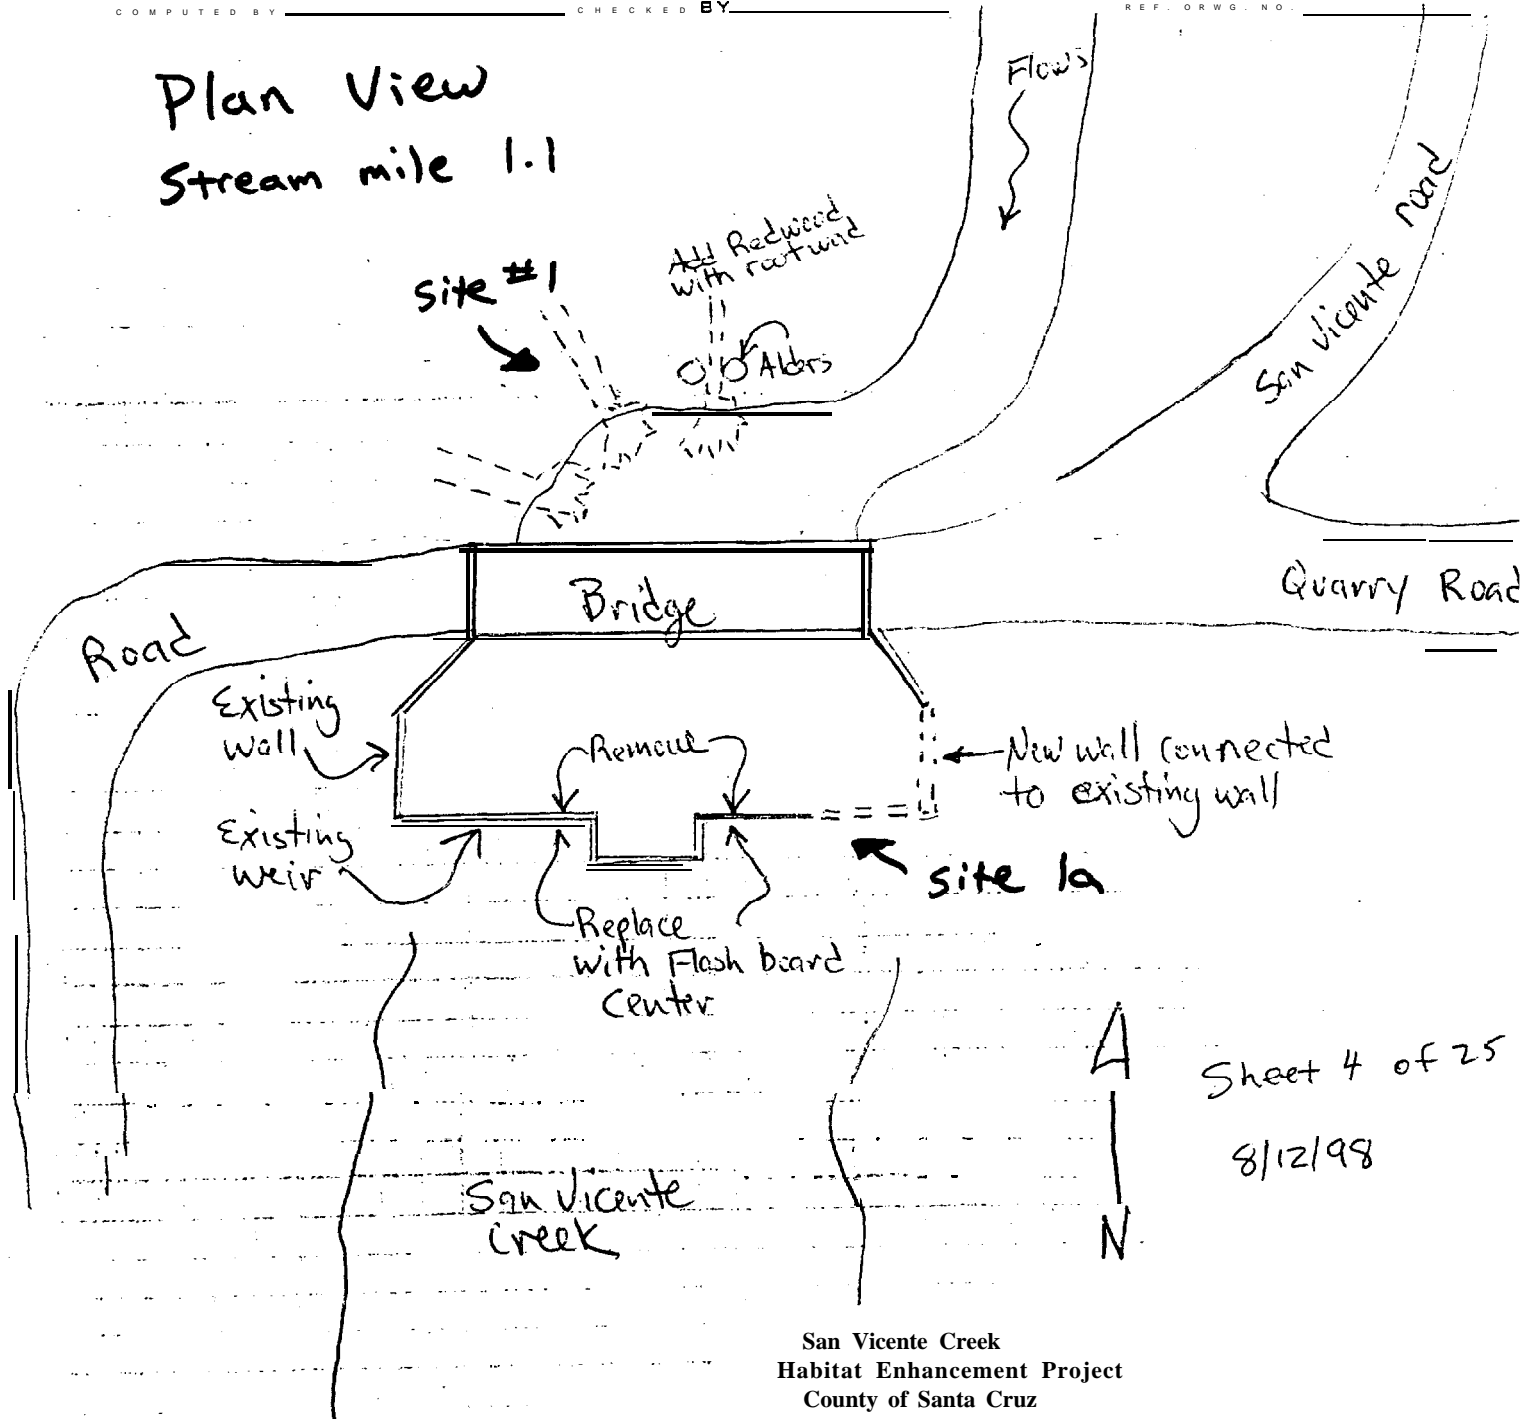 COMPUTED BY
CHECKED BY
REF. DRWG. NO.
Plan View
Stream mile 1.1
Flows
Add Redwood
with rootwad
Site #1
Alders
San Vicente road
Bridge
Quarry Road
Road
Existing
wall
Remove
New wall connected
to existing wall
Existing
weir
Site 1a
Replace
with Flash board
Center
Sheet 4 of 25
8/12/98
San Vicente
Creek
N
San Vicente Creek
Habitat Enhancement Project
County of Santa Cruz